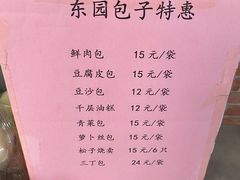 东园包子特惠
鲜肉包 15元/袋
豆腐皮包 15元/袋
豆沙包 12元/袋
千层油糕 12元/袋
青菜包 15元/袋
萝卜丝包 15元/袋
松子烧卖 15元/6片
三丁包 24元/袋